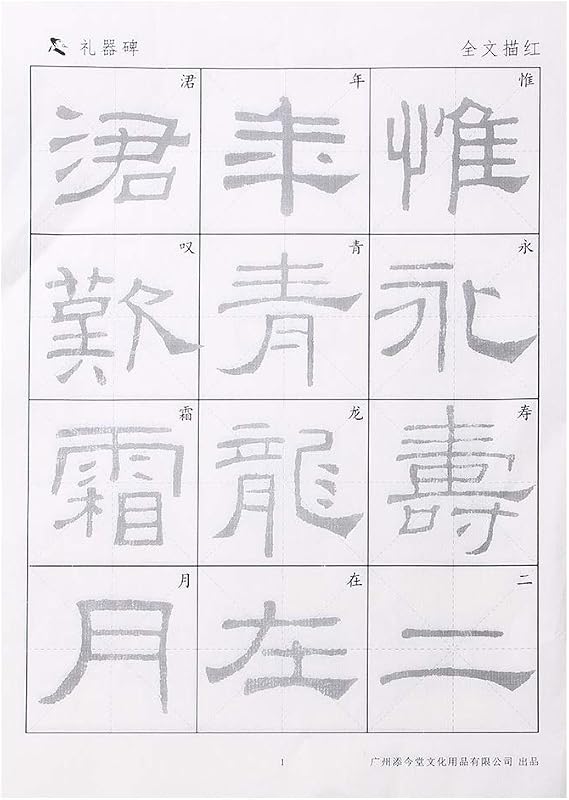 礼器碑
全文描红
惟永寿二
惟永壽二
年青龙在
年青龍在
涒叹霜月
涒歎霜月
1
广州添今堂文化用品有限公司 出品